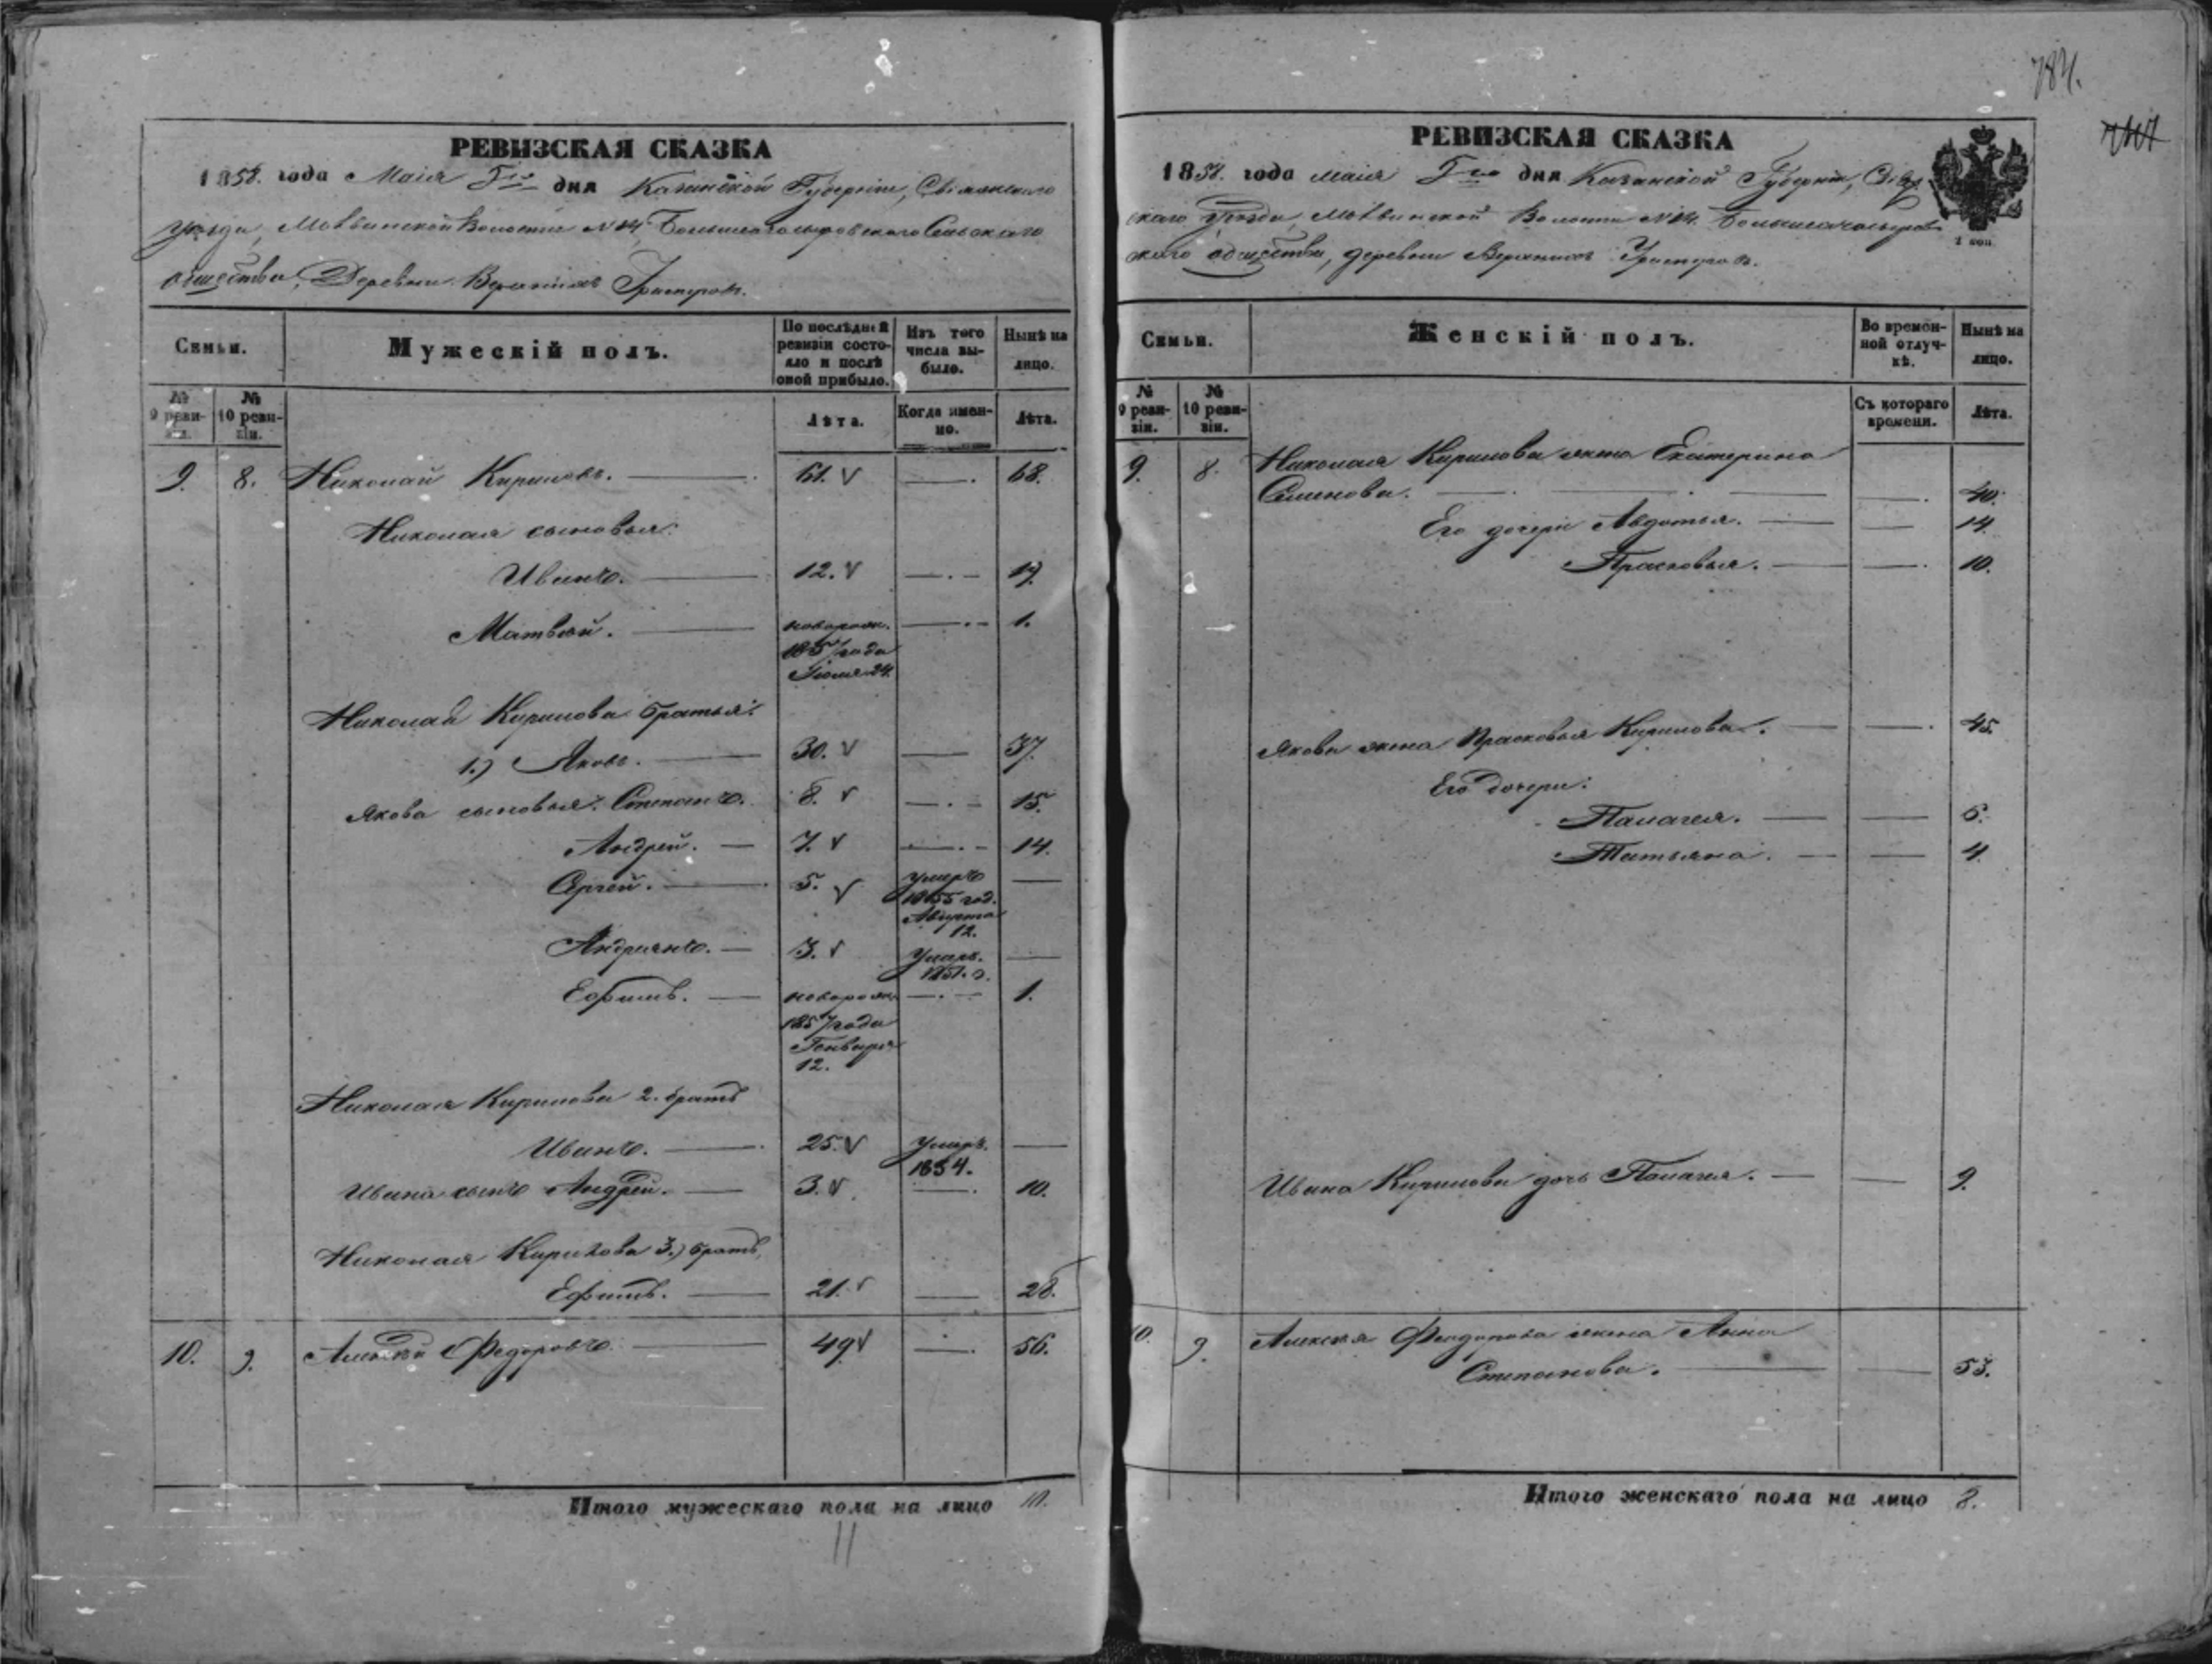 784.
РЕВИЗСКАЯ СКАЗКА
1858. года Маія 1го дня Казанской Губерніи, Свіяжскаго
уѣзда, Волости № 14,
общества, Деревни Верхнихъ
Семьи.
Мужескій полъ.
По послѣдней ревизіи состояло и послѣ оной прибыло.
Изъ того числа выбыло.
Нынѣ на лицо.
№ 9 ревизіи.
№ 10 ревизіи.
Лѣта.
Когда именно.
Лѣта.
9. 8. Николай Кириловъ. 61. 68.
Николая сыновья:
Иванъ. 12. 19.
Матвѣй. новорож. 1.
1857 года
Іюля 24.
Николая Кирилова братья:
1.) Яковъ. 30. 37.
Якова сыновья: Степанъ. 8. 15.
Андрей. 7. 14.
Сергей. 5. умеръ
1855 год.
Августа
12.
Андреянъ. 3. Умеръ.
1851. г.
Ефимъ. новорож. 1.
1857 года
Генваря
12.
Николая Кирилова 2. братъ
Иванъ. 25. Умеръ.
1854.
Ивана сынъ Андрей. 3. 10.
Николая Кирилова 3.) братъ,
Ефимъ. 21. 28.
10. 9. Алексѣй Федоровъ. 49 56.
Итого мужескаго пола на лицо
11
РЕВИЗСКАЯ СКАЗКА
1858. года маія 1го дня Казанской Губерніи,
скаго уѣзда, Волости № 14.
скаго общества, деревни Верхнихъ
2 коп.
Семьи.
Женскій полъ.
Во временной отлучкѣ.
Нынѣ на лицо.
№ 9 ревизіи.
№ 10 ревизіи.
Съ котораго времени.
Лѣта.
9. 8. Николая Кирилова жена Екатерина
Семенова. 40.
Его дочери Авдотья. 14.
Прасковья. 10.
Якова жена Прасковья Кирилова. 45.
Его дочери:
Палагея. 6.
Татьяна. 4.
Ивана Кирилова дочь Палагея. 9.
10. 9. Алексѣя Феодорова жена Анна
Степанова. 53.
Итого женскаго пола на лицо 8.